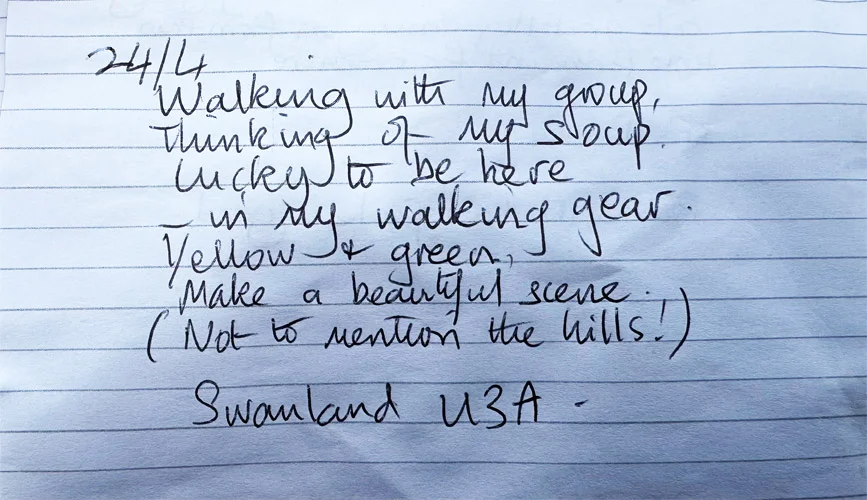 24/4
Walking with my group,
Thinking of my soup.
Lucky to be here
– in my walking gear.
Yellow & green,
Make a beautiful scene.
(Not to mention the hills!)
Swanland U3A -